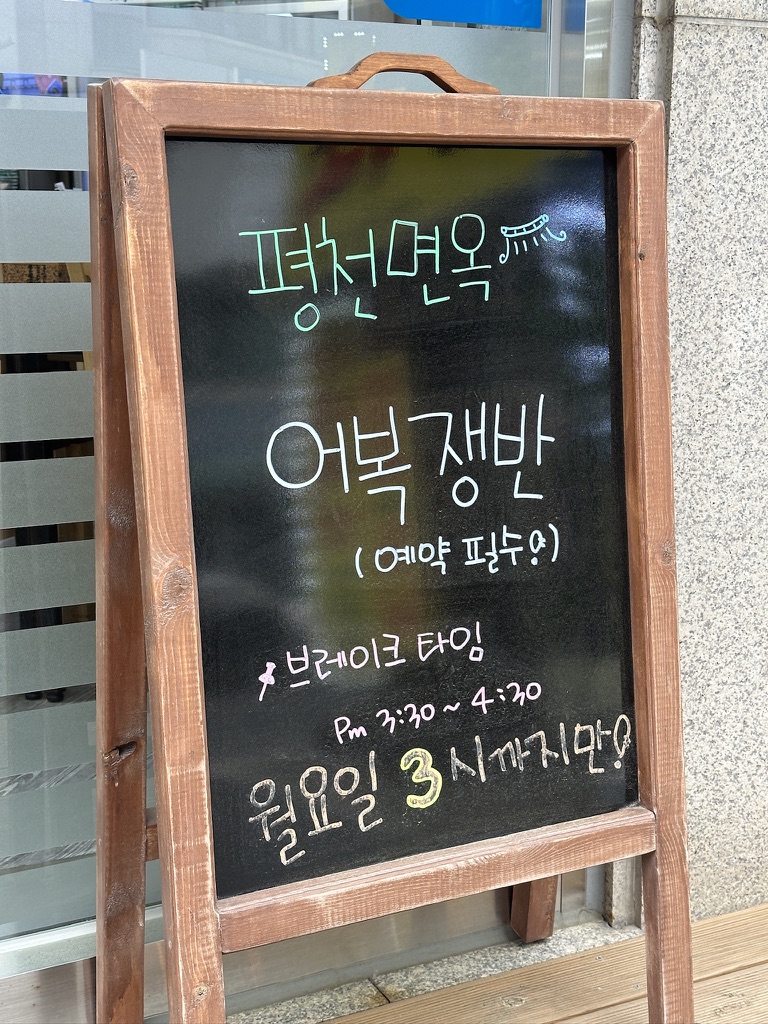 평천면옥
어복쟁반
(예약 필수!)
브레이크 타임
Pm 3:30~4:30
월요일 3시까지만!